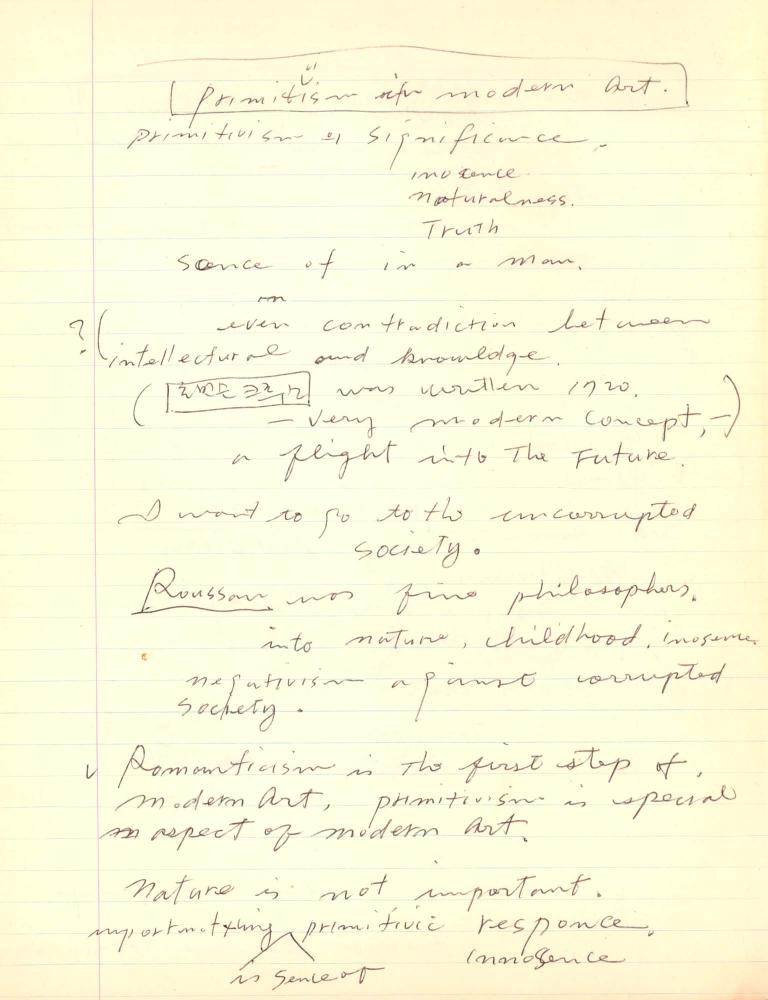 Primitism in modern Art.
primitivism 의 significance.
inosence
naturalness.
Truth
sence of in a man.
even contradiction between
? ( intellectural and knowldge.
( 로빈슨 크루소 was written 1920.
— very modern concept, — )
a flight into The Future.
I want to go to the uncorrupted
society.
Roussau was fine philosophers.
into nature, childhood, inosence
negativism against corrupted
society.
v Romanticism is the first step of,
modern Art, primitivism is special
aspect of modern Art.
Nature is not important.
important thing primitivic responce.
is sence of innosence